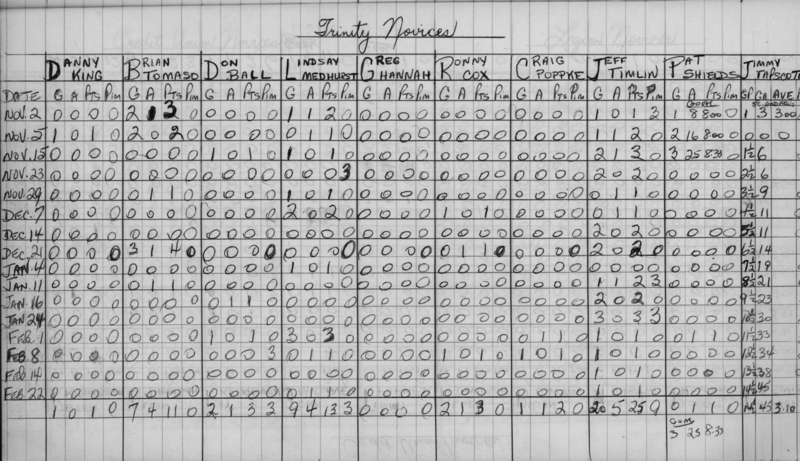 Trinity Novices
DANNY KING BRIAN TOMASO DON BALL LINDSAY MEDHURST GREG HANNAH RONNY COX CRAIG POPPKE JEFF TIMLIN PAT SHIELDS JIMMY TAPSCOTT
DATE G A Pts Pim G A Pts Pim G A Pts Pim G A Pts Pim G A Pts Pim G A Pts Pim G A Pts Pim G A Pts Pim G A Pts Pim GP GA AVE
NOV. 2 0 0 0 0 2 1 3 0 0 0 0 0 1 1 2 0 0 0 0 0 0 0 0 0 0 0 0 0 1 0 1 2 1 8 8.00 1 3 3.00
NOV. 5 1 0 1 0 2 0 2 0 0 0 0 0 0 1 1 0 0 0 0 0 0 0 0 0 0 0 0 0 1 1 2 0 2 16 8.00 0 0 0
NOV. 15 0 0 0 0 0 0 0 0 1 0 1 0 1 0 1 0 0 0 0 0 0 0 0 0 0 0 0 0 2 1 3 0 3 25 8.33 1½ 6
NOV. 23 0 0 0 0 0 0 0 0 0 0 0 0 0 0 0 3 0 0 0 0 0 0 0 0 0 0 0 0 2 0 2 0 0 0 0 0 2½ 6
NOV. 29 0 0 0 0 0 1 1 0 0 0 0 0 1 0 1 0 0 0 0 0 0 0 0 0 0 0 0 0 0 1 1 0 0 0 0 0 3½ 9
DEC. 7 0 0 0 0 0 0 0 0 0 0 0 0 2 0 2 0 0 0 0 0 1 0 1 0 0 0 0 0 0 1 1 0 0 0 0 0 11
DEC 14 0 0 0 0 0 0 0 0 0 0 0 0 0 0 0 0 0 0 0 0 0 0 0 0 0 0 0 0 2 0 2 0 0 0 0 0 5½ 11
DEC. 21 0 0 0 0 3 1 4 0 0 0 0 0 0 0 0 0 0 0 0 0 0 1 1 0 0 0 0 0 2 0 2 0 0 0 0 0 6½ 14
JAN. 4 0 0 0 0 0 0 0 0 0 0 0 0 1 0 1 0 0 0 0 0 0 0 0 0 0 0 0 0 0 0 0 0 0 0 0 0 7½ 19
JAN. 11 0 0 0 0 0 1 1 0 0 0 0 0 0 0 0 0 0 0 0 0 0 0 0 0 0 0 0 0 1 1 2 3 0 0 0 0 8½ 21
JAN. 16 0 0 0 0 0 0 0 0 0 1 1 0 0 0 0 0 0 0 0 0 0 0 0 0 0 0 0 0 2 0 2 0 0 0 0 0 9½ 23
JAN 24 0 0 0 0 0 0 0 0 0 0 0 0 0 0 0 0 0 0 0 0 0 0 0 0 0 0 0 0 3 0 3 3 0 0 0 0 10½ 30
FEB. 1 0 0 0 0 0 0 0 0 1 0 1 0 3 0 3 0 0 0 0 0 0 0 0 0 0 1 1 0 1 0 1 0 0 1 1 0 11½ 33
FEB. 8 0 0 0 0 0 0 0 0 0 0 0 3 0 1 1 0 0 0 0 0 1 0 1 0 1 0 1 0 1 0 1 0 0 0 0 0 34
FEB. 14 0 0 0 0 0 0 0 0 0 0 0 0 0 0 0 0 0 0 0 0 0 0 0 0 0 0 0 0 1 0 1 0 0 0 0 0 13½ 38
FEB. 22 0 0 0 0 0 0 0 0 0 0 0 0 0 1 1 0 0 0 0 0 0 0 0 0 0 0 0 0 1 0 1 0 0 0 0 0 14½ 45
1 0 1 0 7 4 11 0 2 1 3 3 9 4 13 3 0 0 0 0 2 1 3 0 1 1 2 0 20 5 25 9 0 1 1 0 14½ 45 3.10
GOAL
3 25 8.33